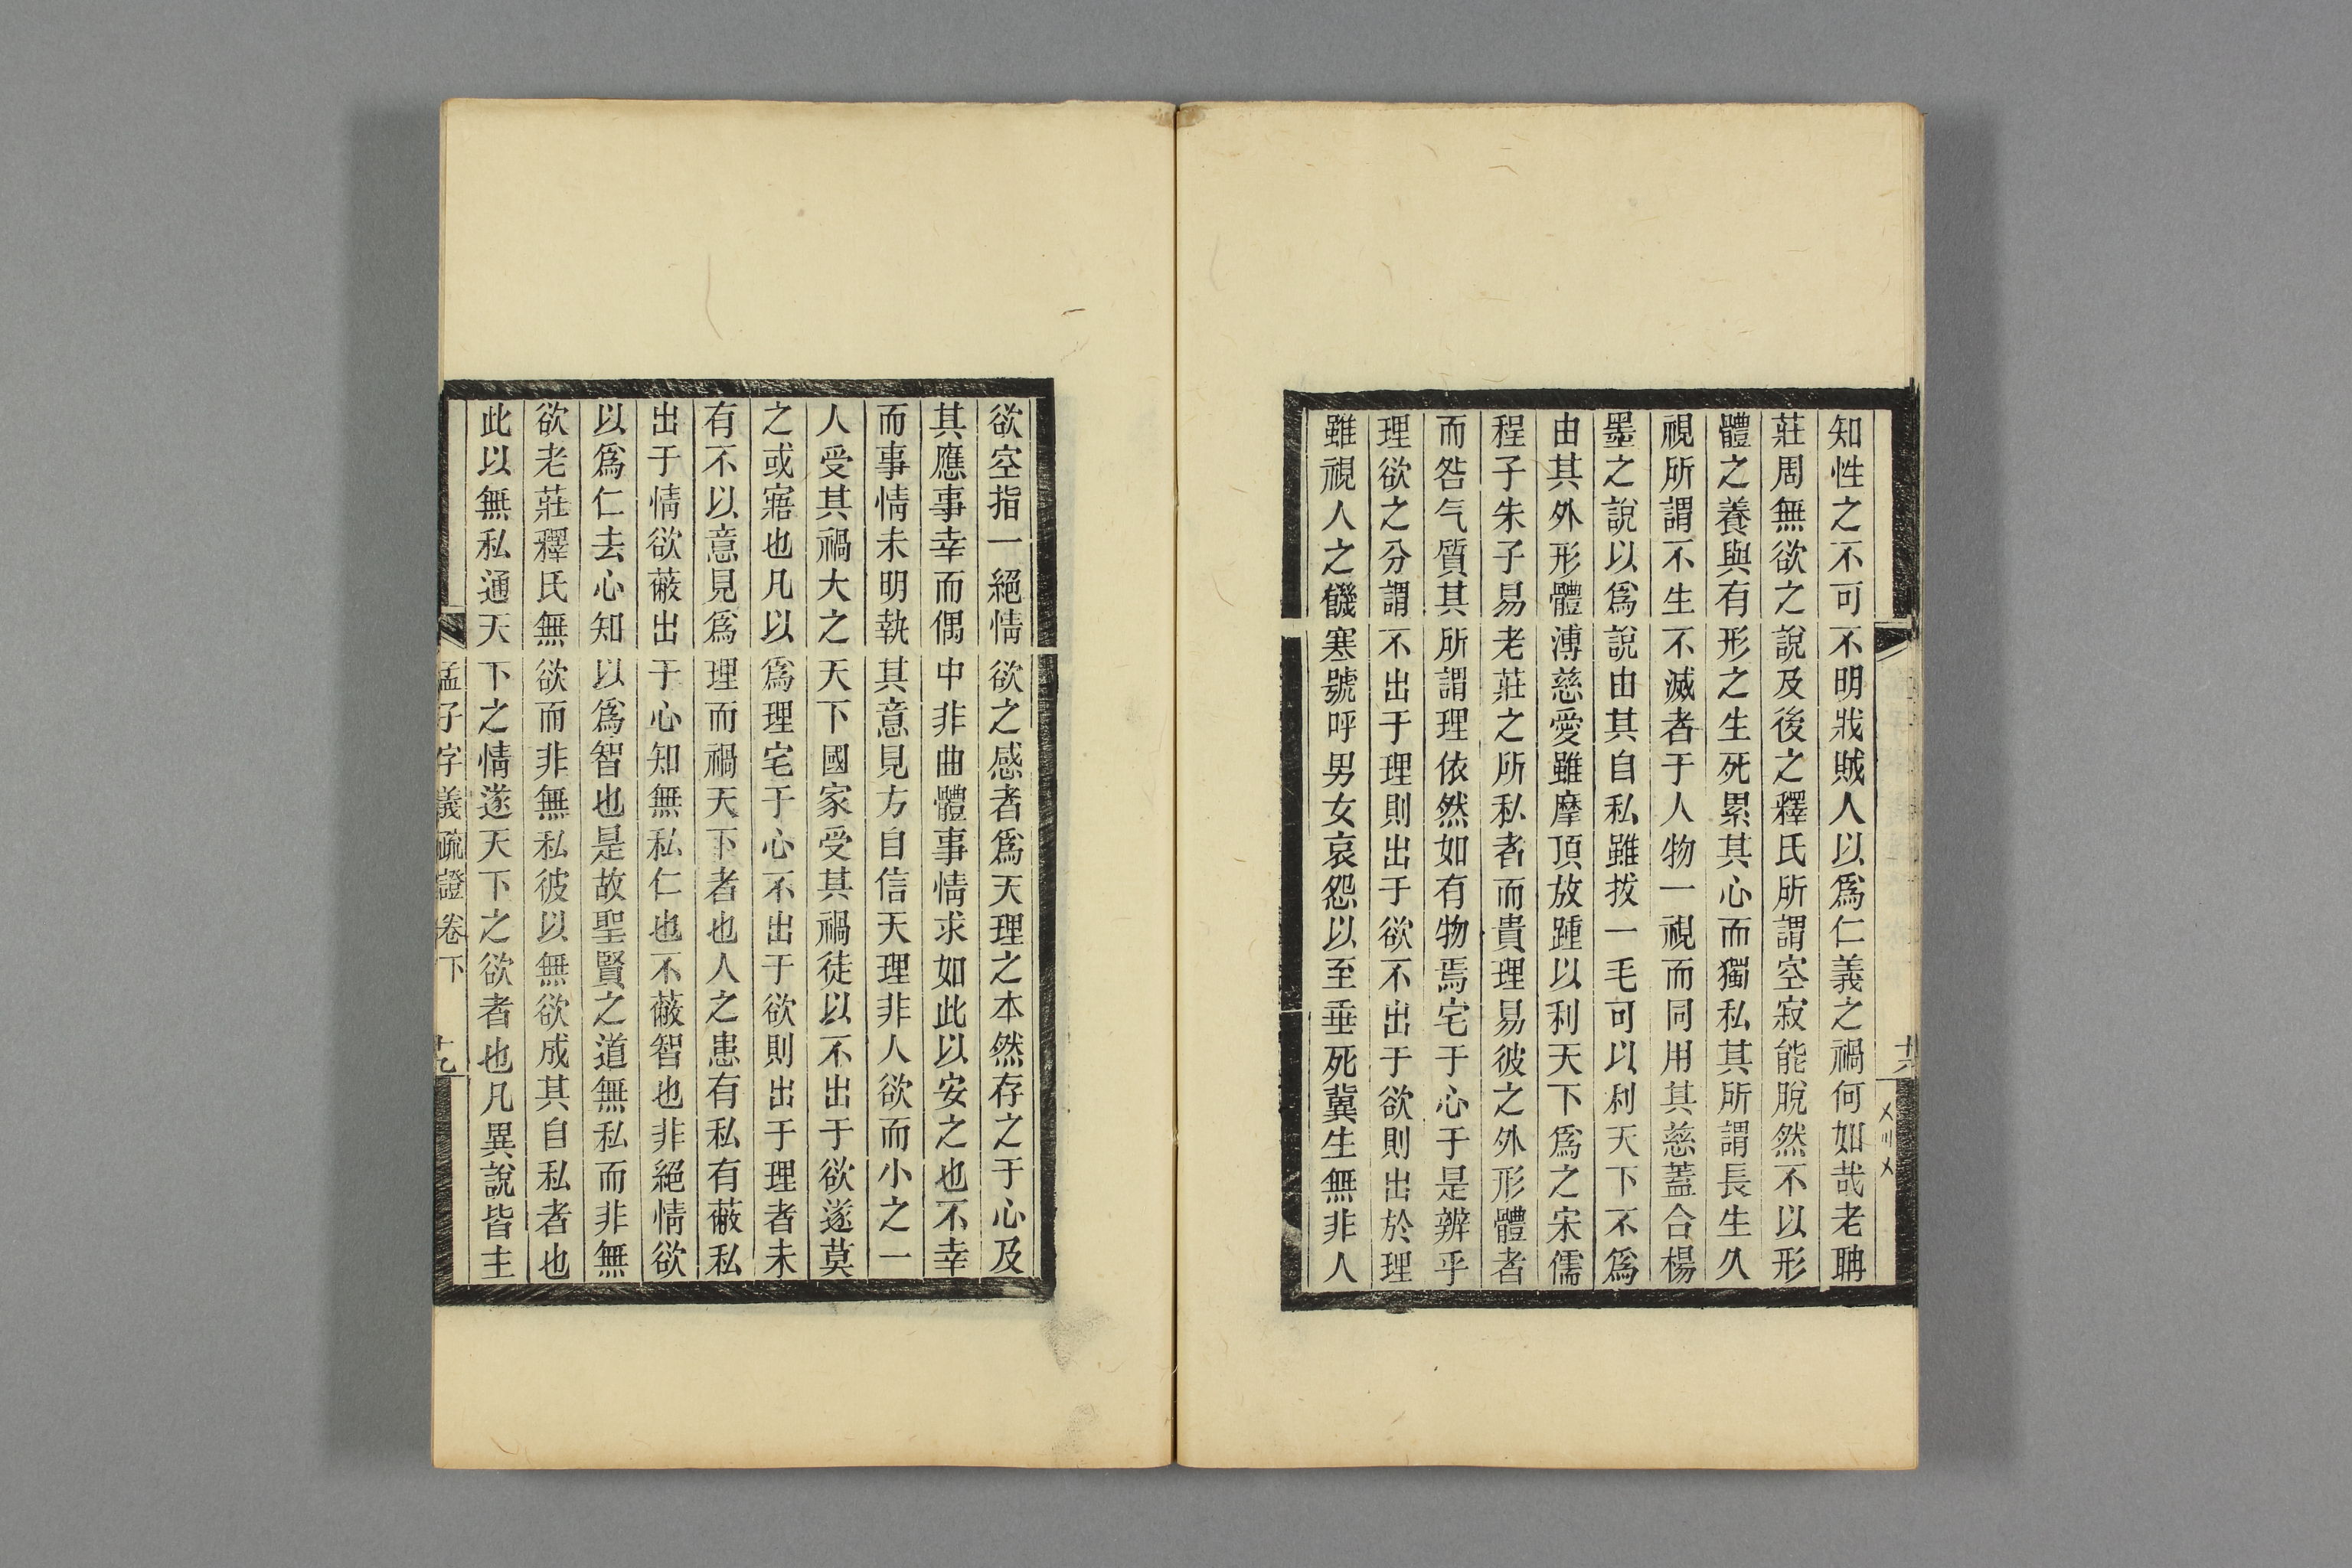 知性之不可不明戕賊人以爲仁義之禍何如哉老聃
莊周無欲之說及後之釋氏所謂空寂能脫然不以形
體之養與有形之生死累其心而獨私其所謂長生久
視所謂不生不滅者于人物一視而同用其慈蓋合楊
墨之說以爲說由其自私雖拔一毛可以利天下不爲
由其外形體溥慈愛雖摩頂放踵以利天下爲之宋儒
程子朱子易老莊之所私者而貴理易彼之外形體者
而咎气質其所謂理依然如有物焉宅于心于是辨乎
理欲之分謂不出于理則出于欲不出于欲則出於理
雖視人之饑寒號呼男女哀怨以至垂死冀生無非人
欲空指一絕情欲之感者爲天理之本然存之于心及
其應事幸而偶中非曲體事情求如此以安之也不幸
而事情未明執其意見方自信天理非人欲而小之一
人受其禍大之天下國家受其禍徒以不出于欲遂莫
之或寤也凡以爲理宅于心不出于欲則出于理者未
有不以意見爲理而禍天下者也人之患有私有蔽私
出于情欲蔽出于心知無私仁也不蔽智也非絕情欲
以爲仁去心知以爲智也是故聖賢之道無私而非無
欲老莊釋氏無欲而非無私彼以無欲成其自私者也
此以無私通天下之情遂天下之欲者也凡異說皆主
孟子字義疏證卷下